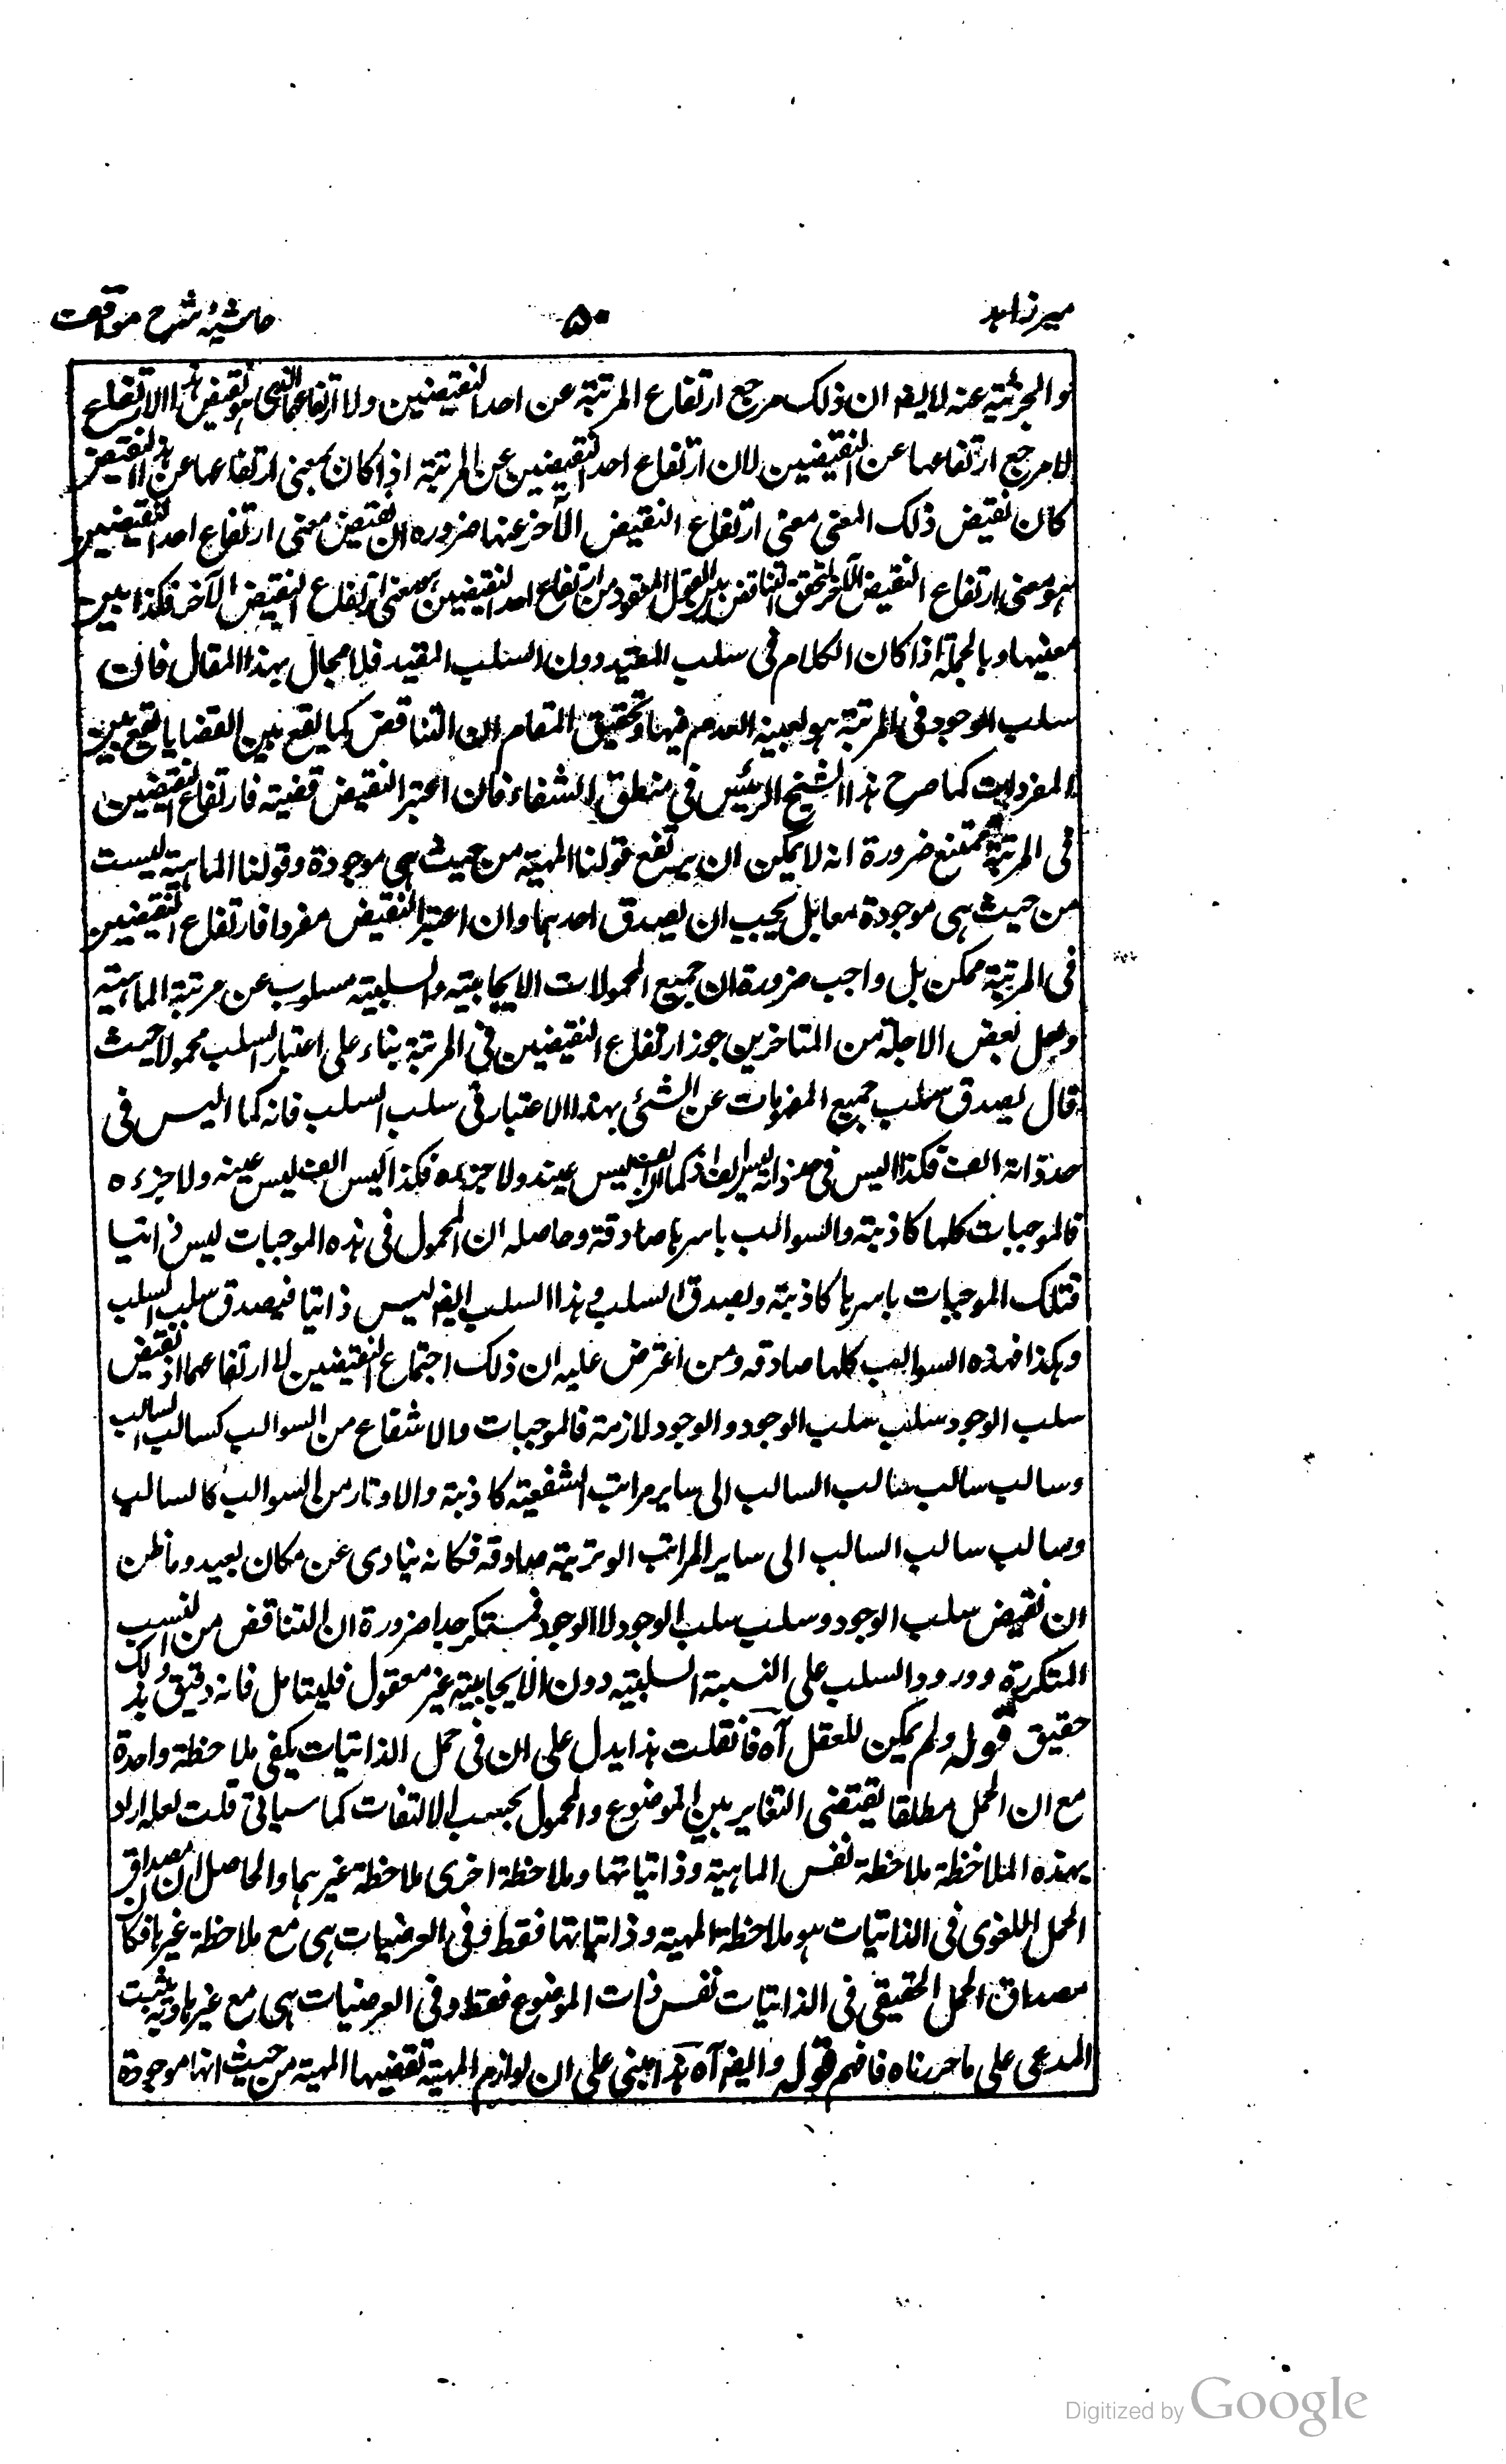 ميرزاہد ۵۰ حاشيۂ شرح مواقف
والجزئية عنه لا يقہ ان ذلك مرجع ارتفاع المرتبة عن احد النقيضين ولا ارتفاعها الذى هو نقيض هذا الارتفاع
لا مرجع ارتفاعها عن النقيضين لان ارتفاع احد النقيضين عن المرتبة اذا كان بمعنى ارتفاعها عن هذا النقيض
كان نقيض ذلك المعنى معنى ارتفاع النقيض الآخر عنها ضروره ان نقيض معنى ارتفاع احد النقيضين
هو معنى ارتفاع النقيض الآخر لتحقق التناقض بين المعقود من ارتفاع احد النقيضين ومعنى ارتفاع النقيض الآخر فكذا بين
معنيها وبالجملة اذا كان الكلام فى سلب المقيد دون السلب المقيد فلا مجال لهذا المقال فان
سلب الوجود فى المرتبة هو بعينه العدم فيها وتحقيق المقام ان التناقض كما يقع بين القضايا يقع بين
المفردات كما صرح به الشيخ الرئيس في منطق الشفاء فان اعتبر النقيض قضية فارتفاع النقيضين
فى المرتبة ممتنع ضرورة انه لا يمكن ان يرتفع قولنا المهية من حيث هى موجودة وقولنا الماهية ليست
من حيث هى موجودة معا بل يجب ان يصدق احدهما وان اعتبر النقيض مفردا فارتفاع النقيضين
فى المرتبة ممكن بل واجب ضرورة ان جميع المحمولات الايجابية والسلبية مسلوب عن مرتبة الماهية
ولعل بعض الاجلة من المتاخرين جوز ارتفاع النقيضين فى المرتبة بناء على اعتبار السلب محمولا حيث
قال يصدق سلب جميع المفهومات عن الشئ بهذا الاعتبار فى سلب السلب فانه كما اليس فى
حد ذاته الف فكذا اليس فى حد ذاته ليس الف اذ كما ان الف ليس عينه ولا جزءه فكذا ليس الف ليس عينه ولا جزءه
فالموجبات كلها كاذبة والسوالب باسرها صادقة وحاصله ان المحمول فى هذه الموجبات ليس ذاتيا
فتلك الموجبات باسرها كاذبة ويصدق السلب وهذا السلب ايضہ ليس ذاتيا فيصدق سلب السلب
وهكذا فهذه السوالب كلها صادقه ومن اعترض عليه ان ذلك اجتماع النقيضين لا ارتفاعهما اذ نقيض
سلب الوجود سلب سلب الوجود والوجود لازمة فالموجبات والاشفاع من السوالب كسالب السالب
وسالب سالب سالب السالب الى ساير مراتب الشفعية كاذبة والاوتار من السوالب كالسالب
وسالب سالب السالب الى ساير المراتب الوترية صادقه فكانه ينادى عن مكان بعيد وما ظن
ان نقيض سلب الوجود وسلب سلب الوجود لا الوجود فمستنكر جدا ضرورة ان التناقض من النسب
المتكررة وورود السلب على النسبة السلبية دون الايجابية غير معقول فليتامل فانه دقيق وبذلك
حقيق قوله ولم يمكن للعقل آه فان قلت هذا يدل على ان فى حمل الذاتيات يكفى ملاحظة واحدة
مع ان الحمل مطلقا يقتضى التغاير بين الموضوع والمحمول بحسب الالتفات كما سياتى قلت لعله اراد
بهذه الملاحظة ملاحظة نفس الماهية وذاتياتها وملاحظة اخرى ملاحظة غيرهما والحاصل ان مصداق
الحمل اللغوى فى الذاتيات هو ملاحظة المهية وذاتياتها فقط وفى العرضيات هى مع ملاحظة غيرها فكان
مصداق الحمل الحقيقى فى الذاتيات نفس ذات الموضوع فقط وفى العرضيات هى مع غيرها وبه يثبت
المدعى على ما حررناه فافهم قوله وايضہ آه هذا مبنى على ان لوازم المهية تقتضيها المهية من حيث انها موجودة
Digitized by Google